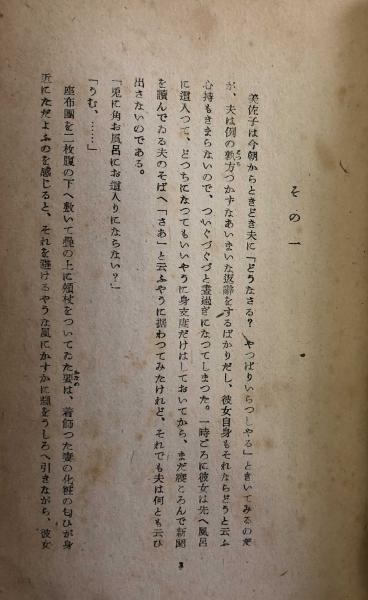 その一
美佐子は今朝からときどき夫に「どうなさる？　やつぱりいらつしやる」ときいてみるのだ
が、夫は例の孰方つかずなあいまいな返辭をするばかりだし、彼女自身もそれならどうと云ふ
心持もきまらないので、ついぐづぐづと晝過ぎになつてしまつた。一時ごろに彼女は先へ風呂
に這入つて、どつちになつてもいいやうに身支度だけはしておいてから、まだ寢ころんで新聞
を讀んでゐる夫のそばへ「さあ」と云ふやうに据わつてみたけれど、それでも夫は何とも云ひ
出さないのである。
「兎に角お風呂にお這入りにならない？」
「うむ、……」
座布團を二枚腹の下へ敷いて疊の上に頬杖をついてゐた要は、着飾つた妻の化粧の匂ひが身
近にただよふのを感じると、それを避けるやうな風にかすかに顏をうしろへ引きながら、彼女
3